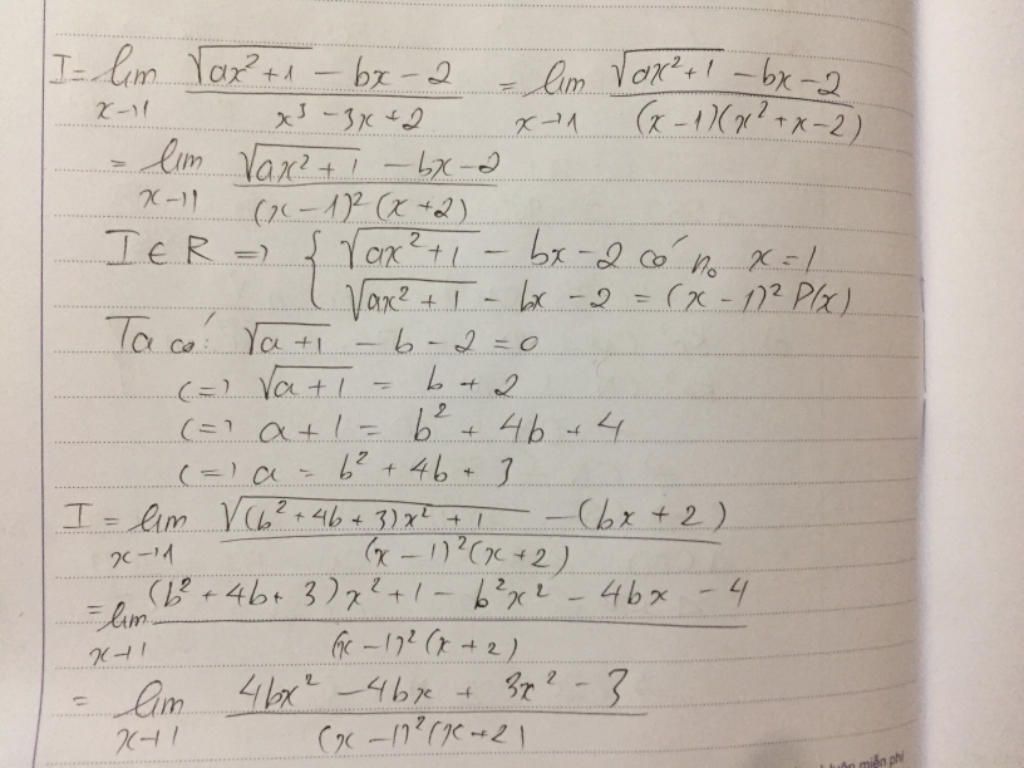 I = lim x→1 (√(ax² + 1) - bx - 2)/(x³ - 3x + 2) = lim x→1 (√(ax² + 1) - bx - 2)/((x - 1)(x² + x - 2))
= lim x→1 (√(ax² + 1) - bx - 2)/((x - 1)² (x + 2))
I ∈ R => { √(ax² + 1) - bx - 2 có n₀ x = 1
√(ax² + 1) - bx - 2 = (x - 1)² P(x)
Ta có: √(a + 1) - b - 2 = 0
(=) √(a + 1) = b + 2
(=) a + 1 = b² + 4b + 4
(=) a = b² + 4b + 3
I = lim x→1 (√((b² + 4b + 3)x² + 1) - (bx + 2))/((x - 1)² (x + 2))
= lim x→1 ((b² + 4b + 3)x² + 1 - b²x² - 4bx - 4)/((x - 1)² (x + 2))
= lim x→1 (4bx² - 4bx + 3x² - 3)/((x - 1)² (x + 2))
miễn phí